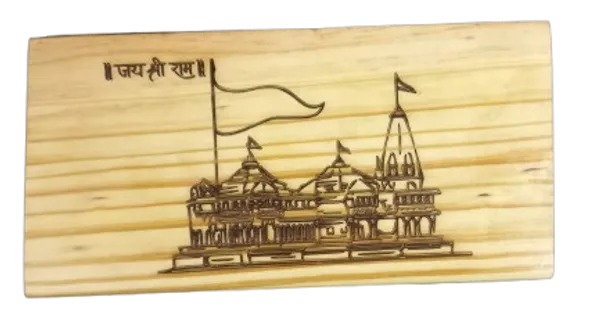 ॥ जय श्री राम ॥